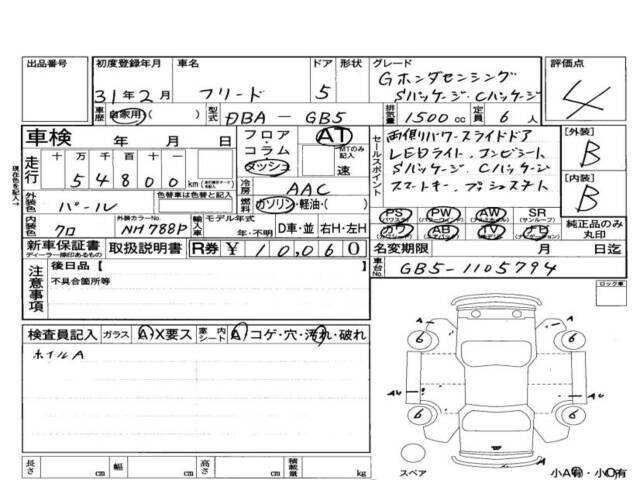 出品番号
初度登録年月 31年2月
車名 フリード
ドア 5
形状
グレード Gホンダセンシング
Sパッケージ・Cパッケージ
評価点 4
車歴 自家用 ( )
型式 DBA-GB5
排気量 1500cc
定員 6人
車検 年 月 日
フロア・コラム ダッシュ
AT
MTのみ記入
速
セールスポイント
両側パワースライドドア
LEDライト、コンビシート
Sパッケージ Cパッケージ
スマートキー、プッシュスタート
[外装] B
[内装] B
現在色を記入
走行 十 万 千 百 十 一
54800 km
冷房 AAC
燃料 ガソリン・軽油・( )
外装色 パール
色替車は色替前色
内装色 クロ
外装カラーNo. NH788P
輸入車 モデル年式 年・不明
D車・並 右H・左H
PS PW AW SR
(サンルーフ)
カワ AB TV ナビ
純正品のみ丸印
新車保証書
ディーラー捺印あるもの
取扱説明書
R券 ¥10,060
名変期限 月 日迄
車台No. GB5-1105794
注意事項
後日品【
不具合箇所等
ロック車
検査員記入 ガラス A・X要ス 室内シート A コゲ・穴・汚れ・破れ
ホイルA
A A
6 6
AU AU
6 6
A
長さ cm 幅 cm 高さ cm 積載量 kg
スペア
小A有・小O有